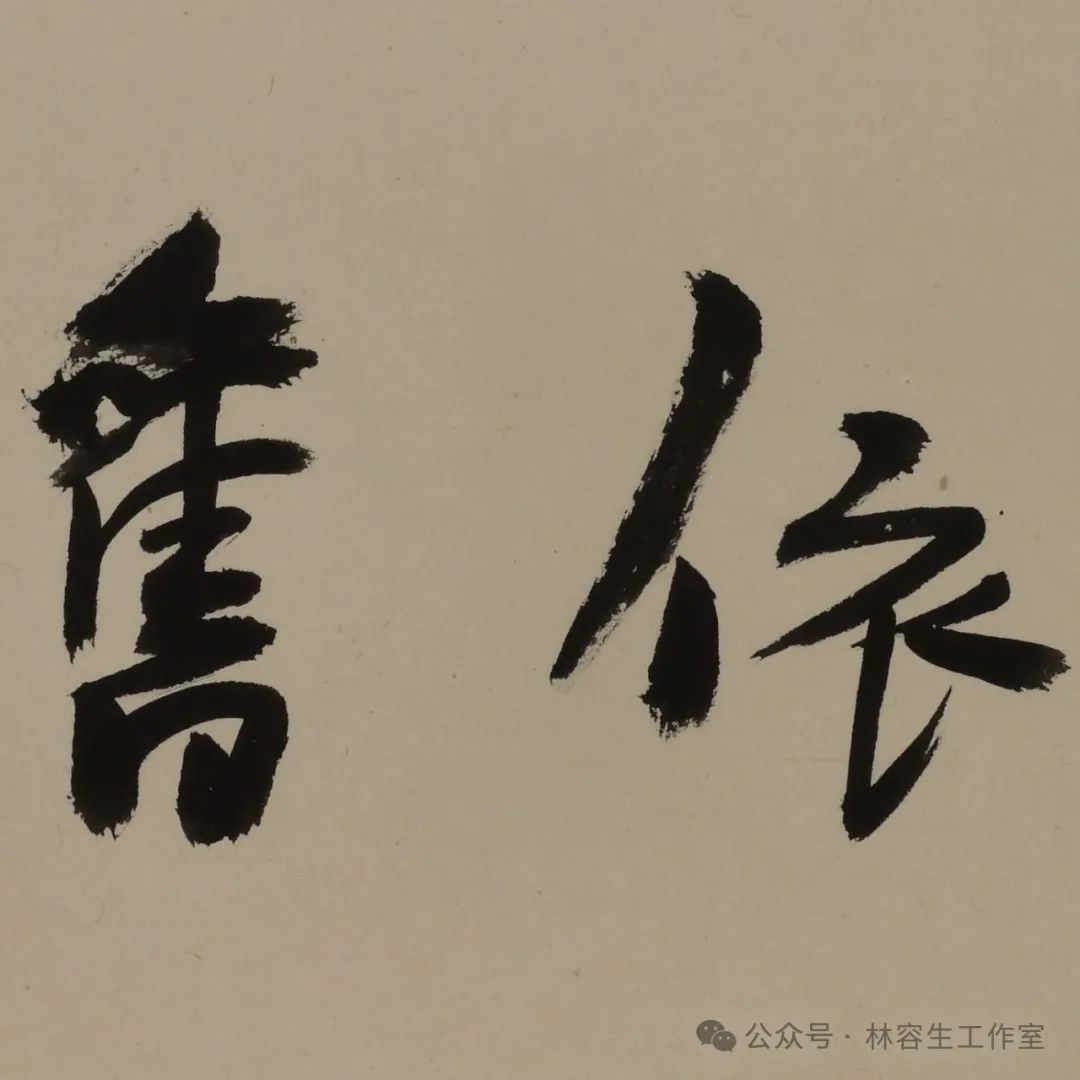 依舊
公众号·林容生工作室